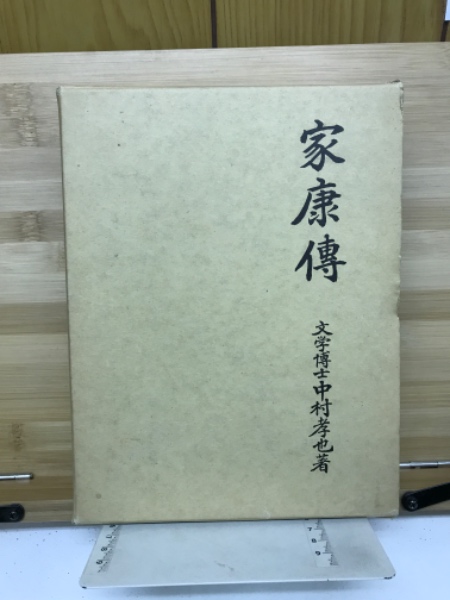 家康傳
文学博士中村孝也著